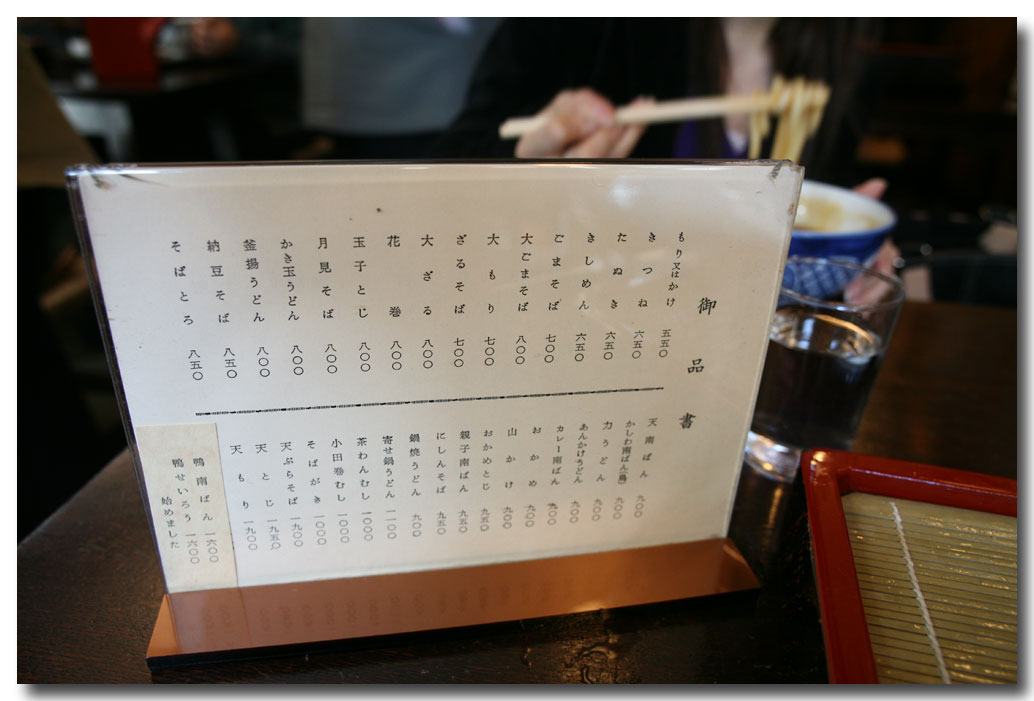 御品書
もり又はかけ 五五〇
きつね 六五〇
たぬき 六五〇
きしめん 六五〇
ごまそば 七〇〇
大ごまそば 八〇〇
大もり 七〇〇
ざるそば 七〇〇
大ざる 八〇〇
花巻 八〇〇
玉子とじ 八〇〇
月見そば 八〇〇
かき玉うどん 八〇〇
釜揚うどん 八〇〇
納豆そば 八五〇
そばとろ 八五〇
天南ばん 九〇〇
かしわ南ばん(鶏) 九〇〇
力うどん 九〇〇
あんかけうどん 九〇〇
カレー南ばん 九〇〇
おかめ 九〇〇
山かけ 九〇〇
おかめとじ 九五〇
親子南ばん 九五〇
にしんそば 九五〇
鍋焼うどん 九〇〇
寄せ鍋うどん 一一〇〇
茶わんむし 一〇〇〇
小田巻むし 一〇〇〇
そばがき 一〇〇〇
天ぷらそば 一九〇〇
天とじ 一九五〇
天もり 一九〇〇
鴨南ばん 一六〇〇
鴨せいろう 一六〇〇
始めました